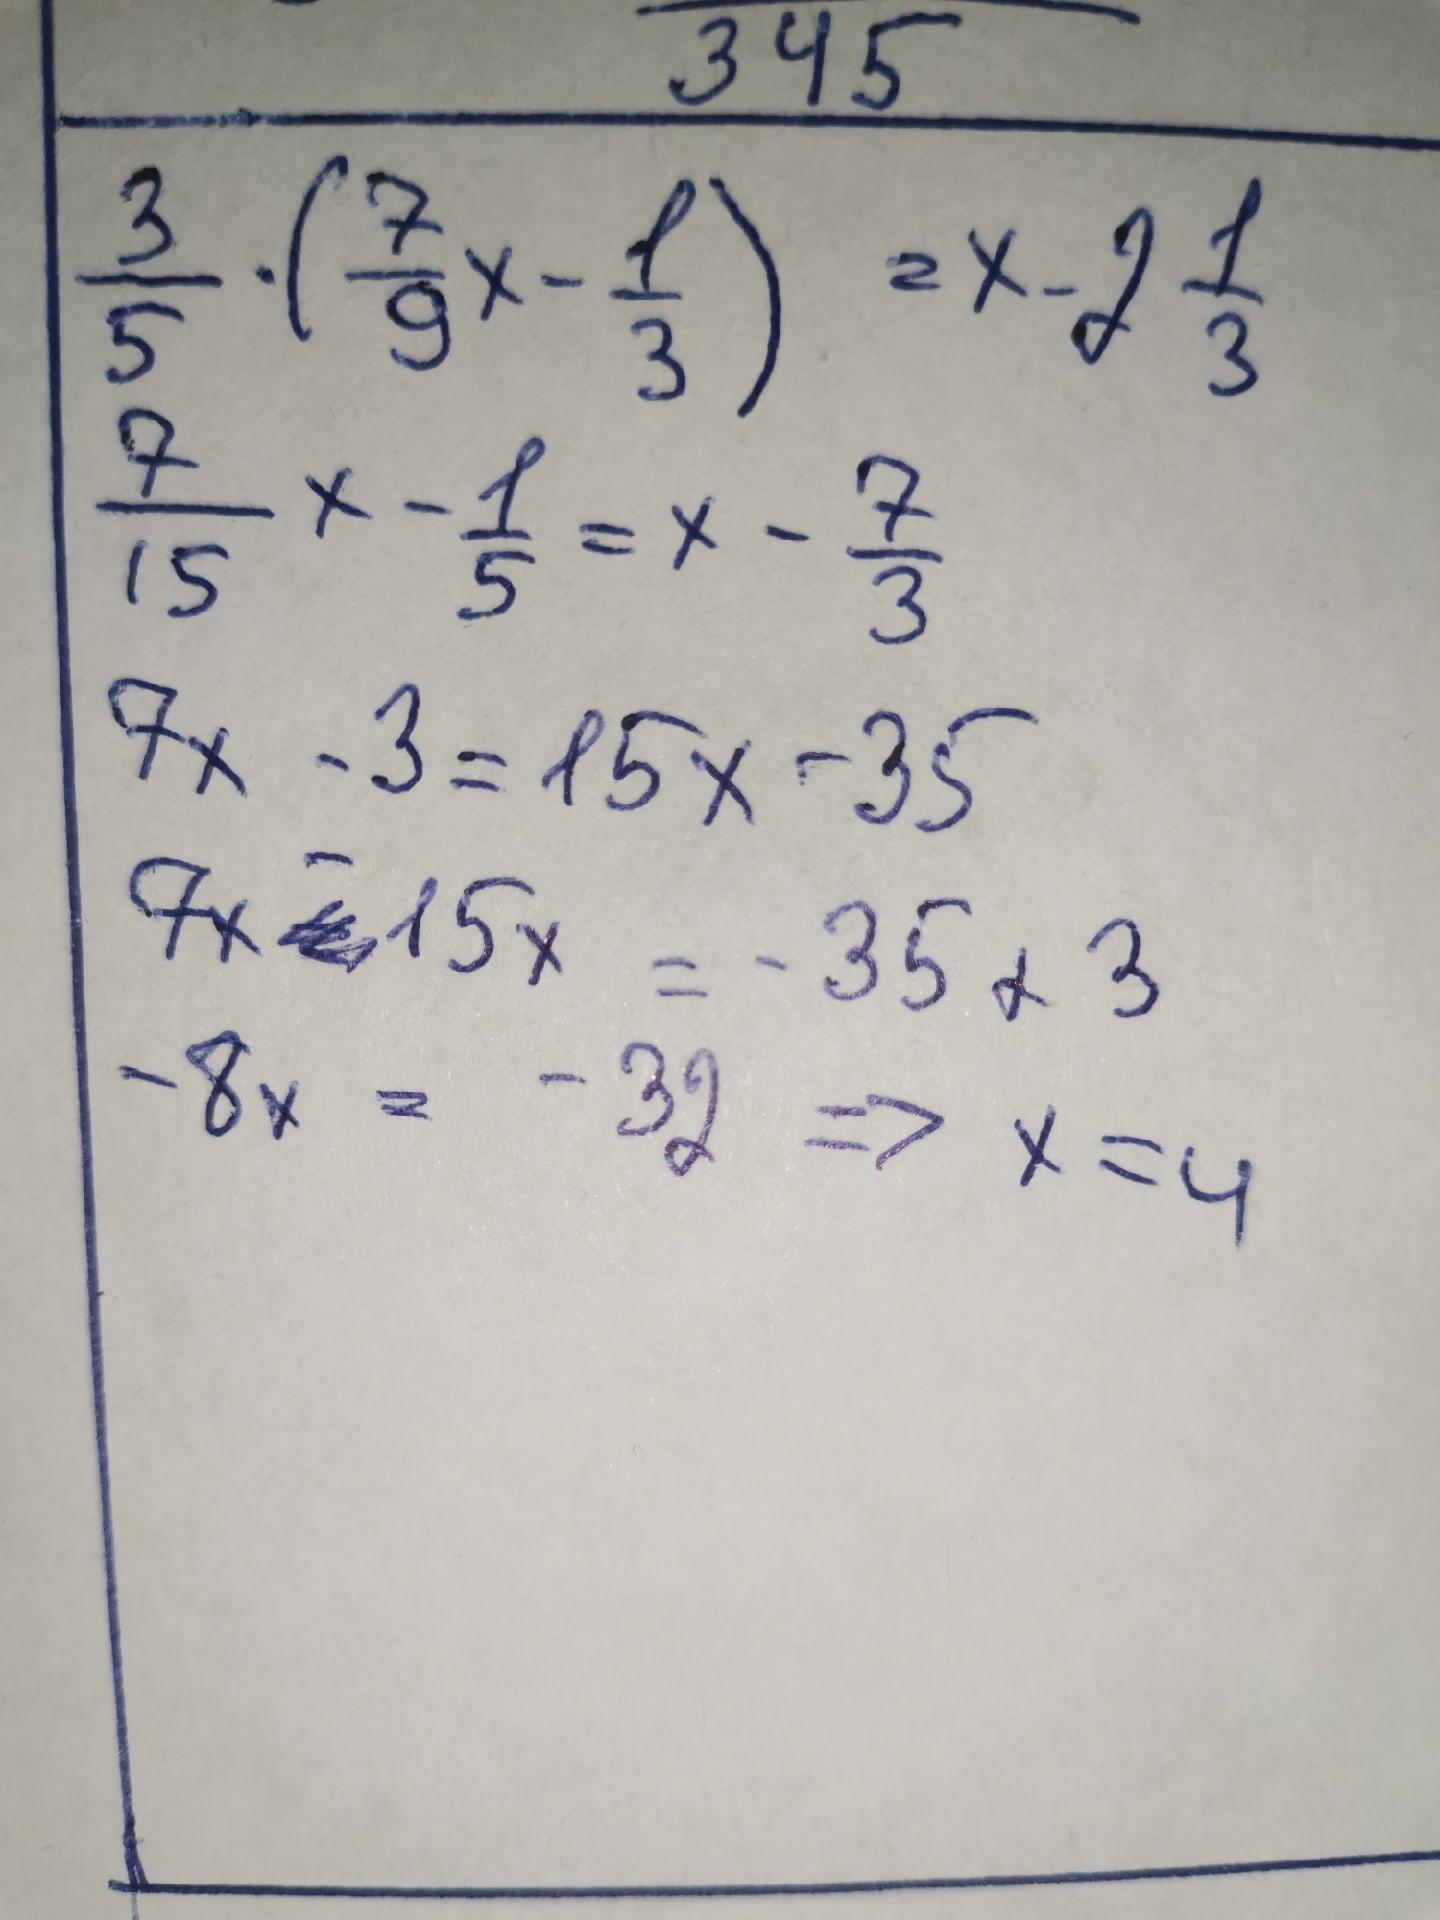 345
3/5 · (7/9 x - 1/3) = x - 2 1/3
7/15 x - 1/5 = x - 7/3
7x - 3 = 15x - 35
7x - 15x = -35 + 3
-8x = -32 => x = 4